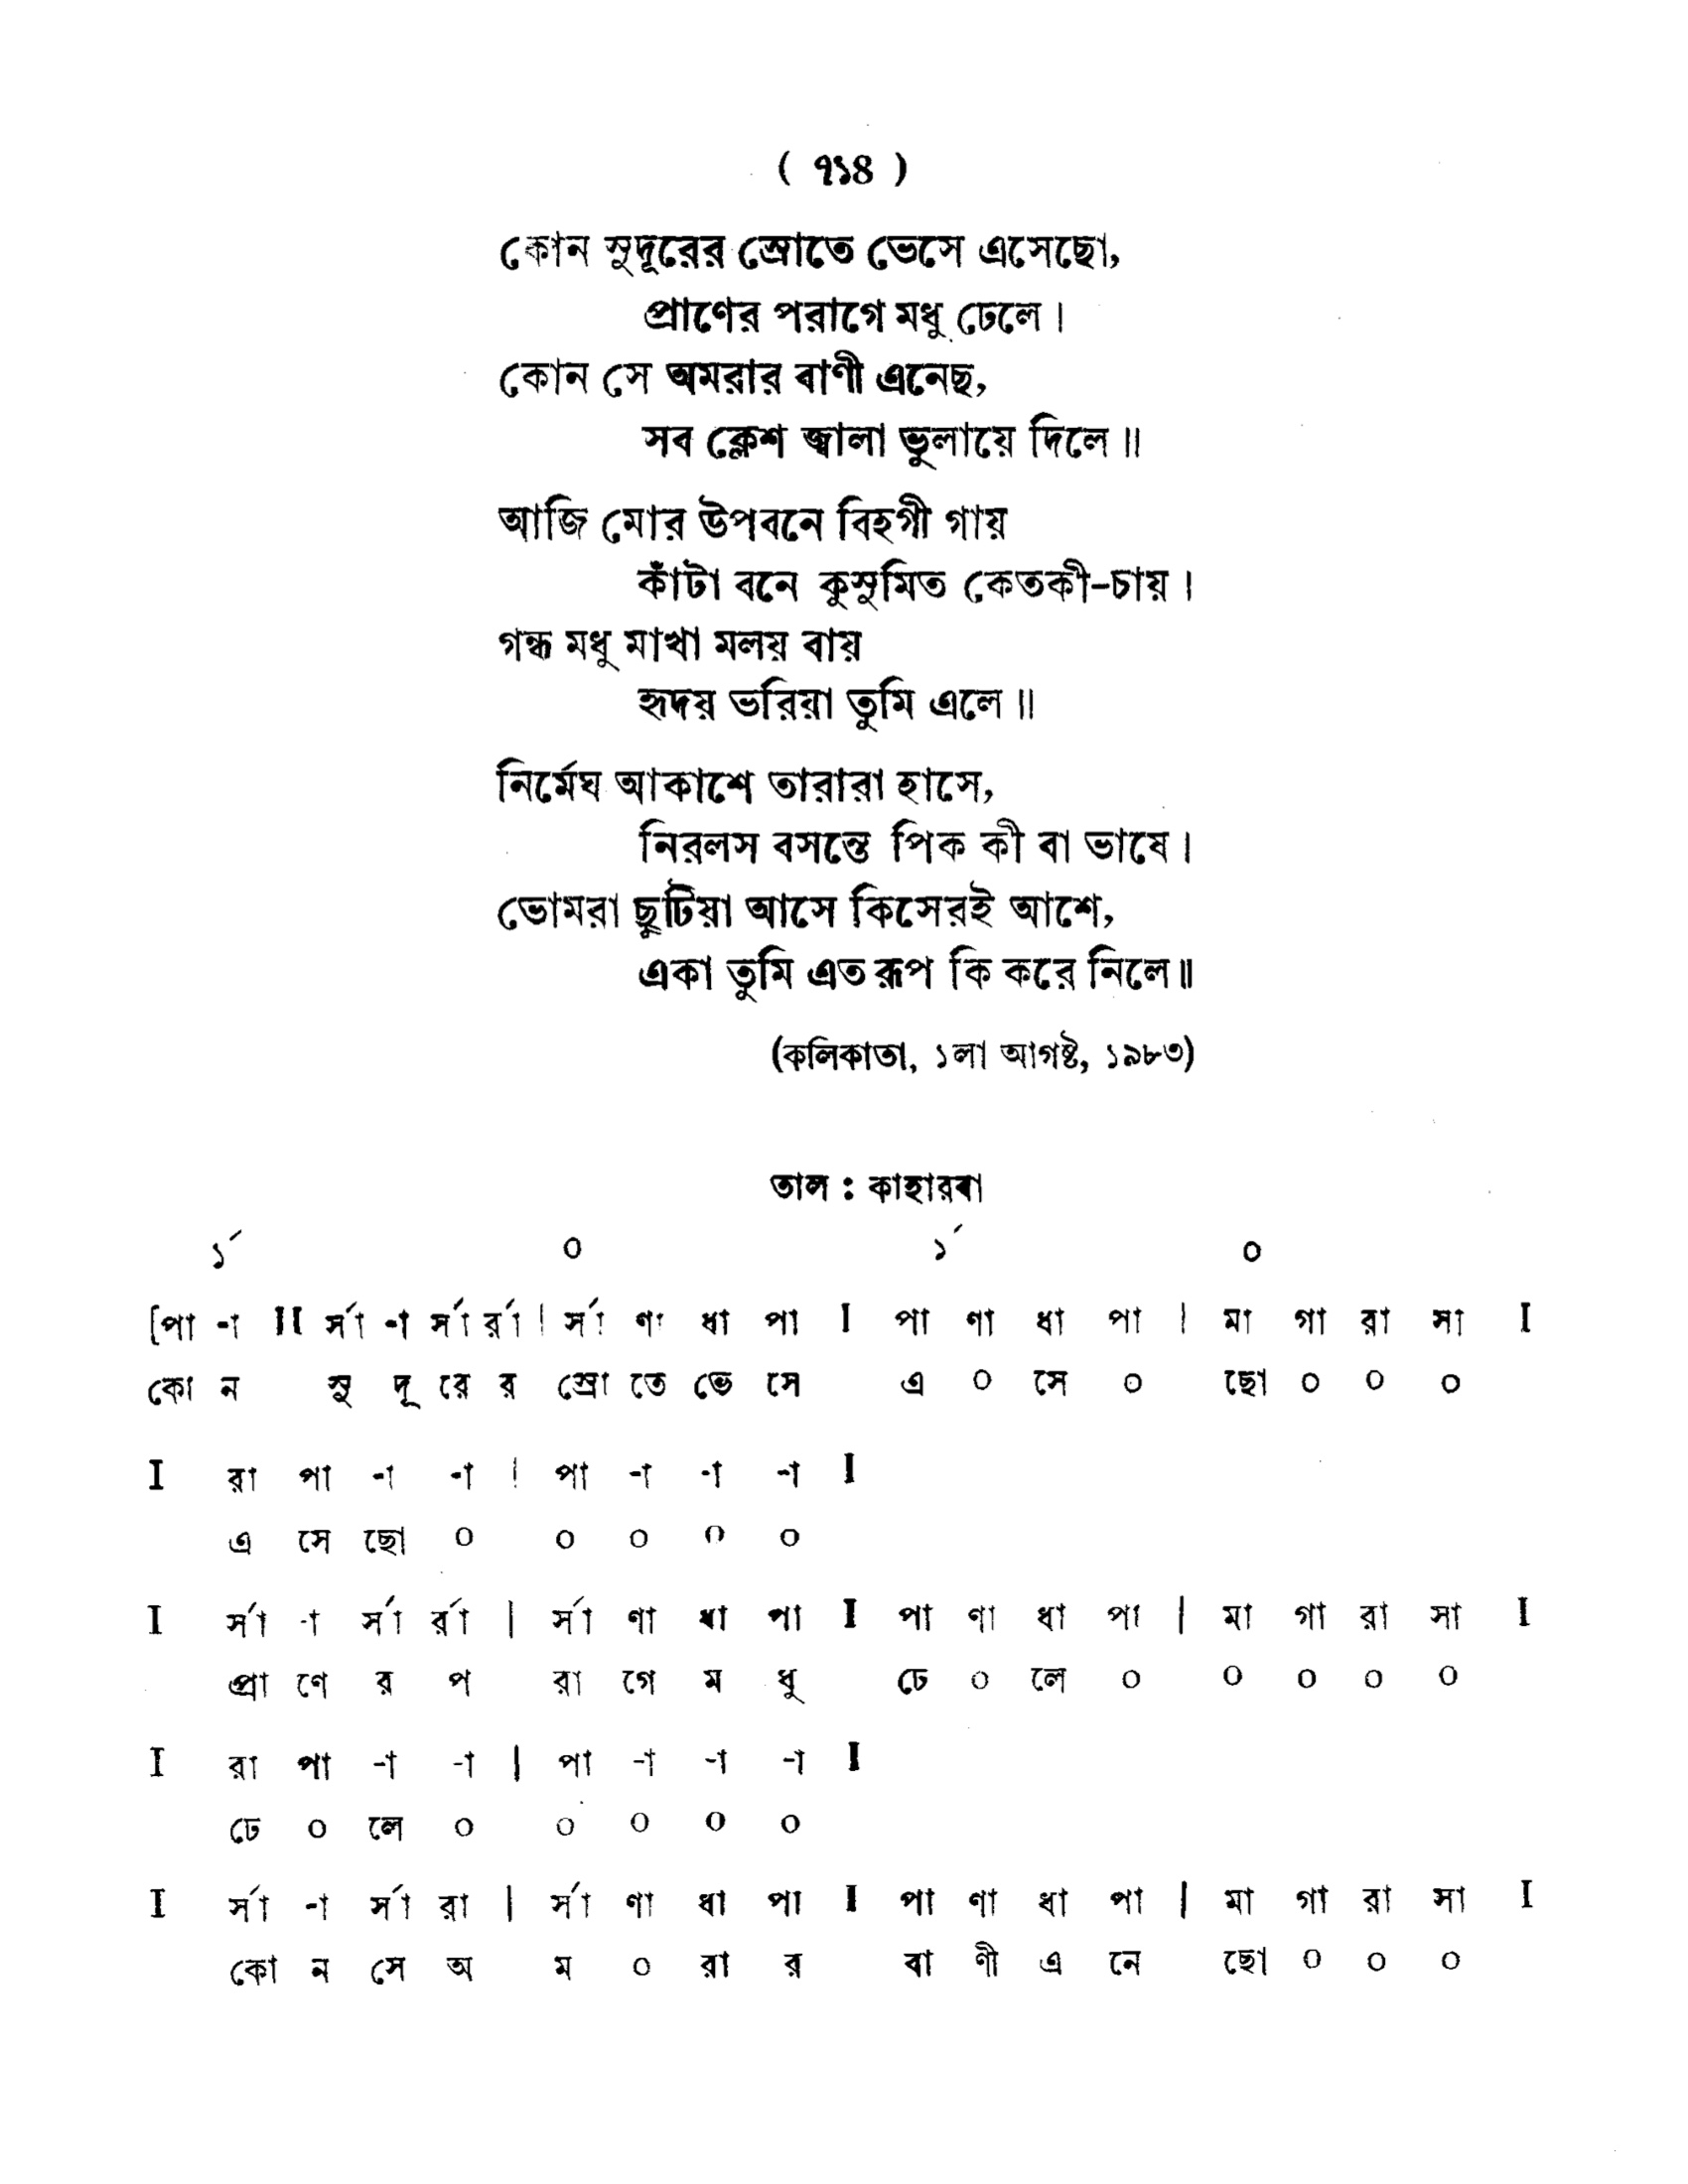 ( ৭১৪ )
কোন সুদূরের স্রোতে ভেসে এসেছো,
প্রাণের পরাগে মধু ঢেলে ।
কোন সে অমরার বাণী এনেছ,
সব ক্লেশ জ্বালা ভুলায়ে দিলে ॥
আজি মোর উপবনে বিহগী গায়
কাঁটা বনে কুসুমিত কেতকী-চায় ।
গন্ধ মধু মাখা মলয় বায়
হৃদয় ভরিয়া তুমি এলে ॥
নির্মেঘ আকাশে তারারা হাসে,
নিরলস বসন্তে পিক কী বা ভাষে ।
ভোমরা ছুটিয়া আসে কিসেরই আশে,
একা তুমি এত রূপ কি করে নিলে ॥
(কলিকাতা, ১লা আগষ্ট, ১৯৮৩)
তাল : কাহারবা
১´ ০ ১´ ০
[পা -া II র্সা -া র্সা র্রা | র্সা ণা ধা পা I পা ণা ধা পা | মা গা রা সা I
কো ন সু দূ রে র স্রো তে ভে সে এ ০ সে ০ ছো ০ ০ ০
I রা পা -া -া | পা -া -া -া I
এ সে ছো ০ ০ ০ ০ ০
I র্সা -া র্সা র্রা | র্সা ণা ধা পা I পা ণা ধা পা | মা গা রা সা I
প্রা ণে র প রা গে ম ধু ঢে ০ লে ০ ০ ০ ০ ০
I রা পা -া -া | পা -া -া -া I
ঢে ০ লে ০ ০ ০ ০ ০
I র্সা -া র্সা রা | র্সা ণা ধা পা I পা ণা ধা পা | মা গা রা সা I
কো ন সে অ ম ০ রা র বা ণী এ নে ছো ০ ০ ০